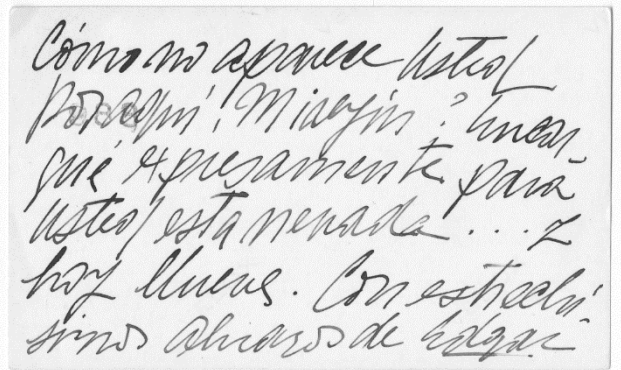 Cómo no aparece Usted
por aquí! Mi            ? Encar-
gué expresamente para
Usted esta nevada . . . y
hoy llueve. Con estrechí
simos abrazos de Edgar